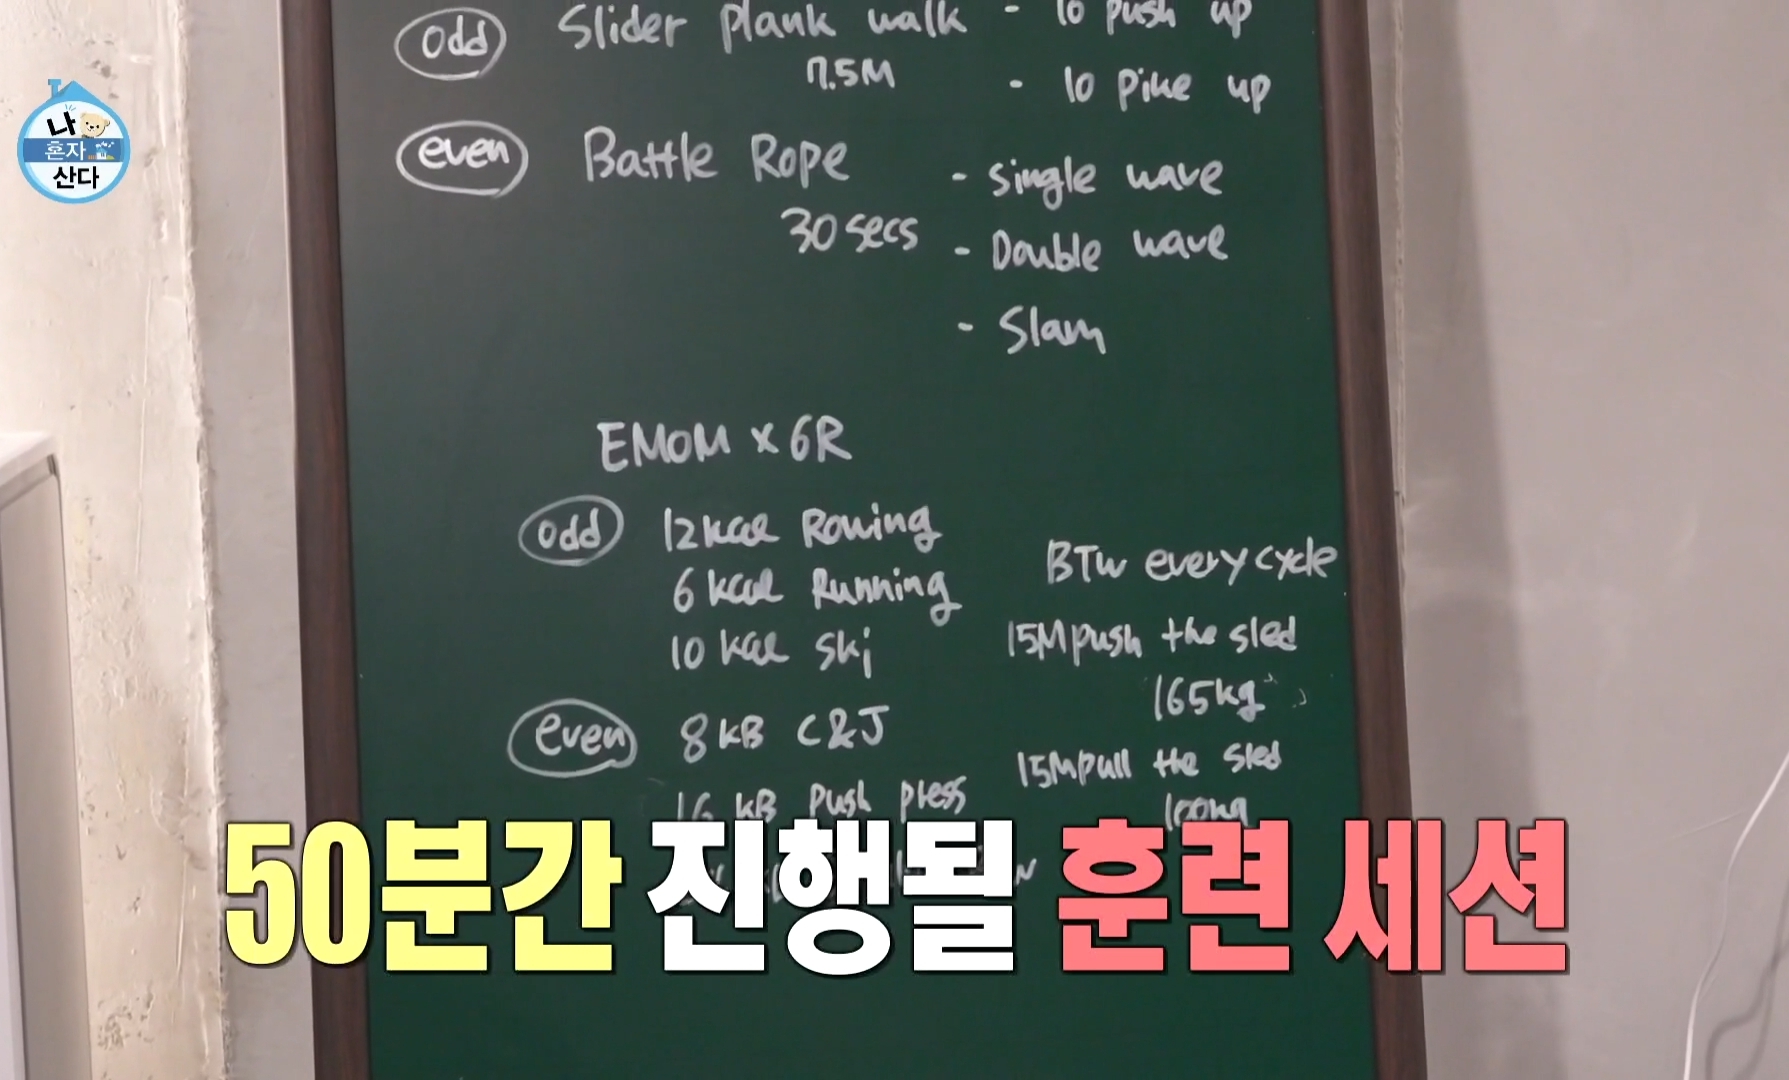 나
혼자
산다
odd Slider plank walk - 10 push up
7.5M - 10 pike up
even Battle Rope - single wave
30 secs - Double wave
- Slam
EMOM x 6R
odd 12 kcal Rowing
6 kcal Running
10 kcal Ski
even 8 KB C&J
16 KB push press
BTW every cycle
15M push the sled
165kg
15M pull the sled
100kg
50분간 진행될 훈련 세션